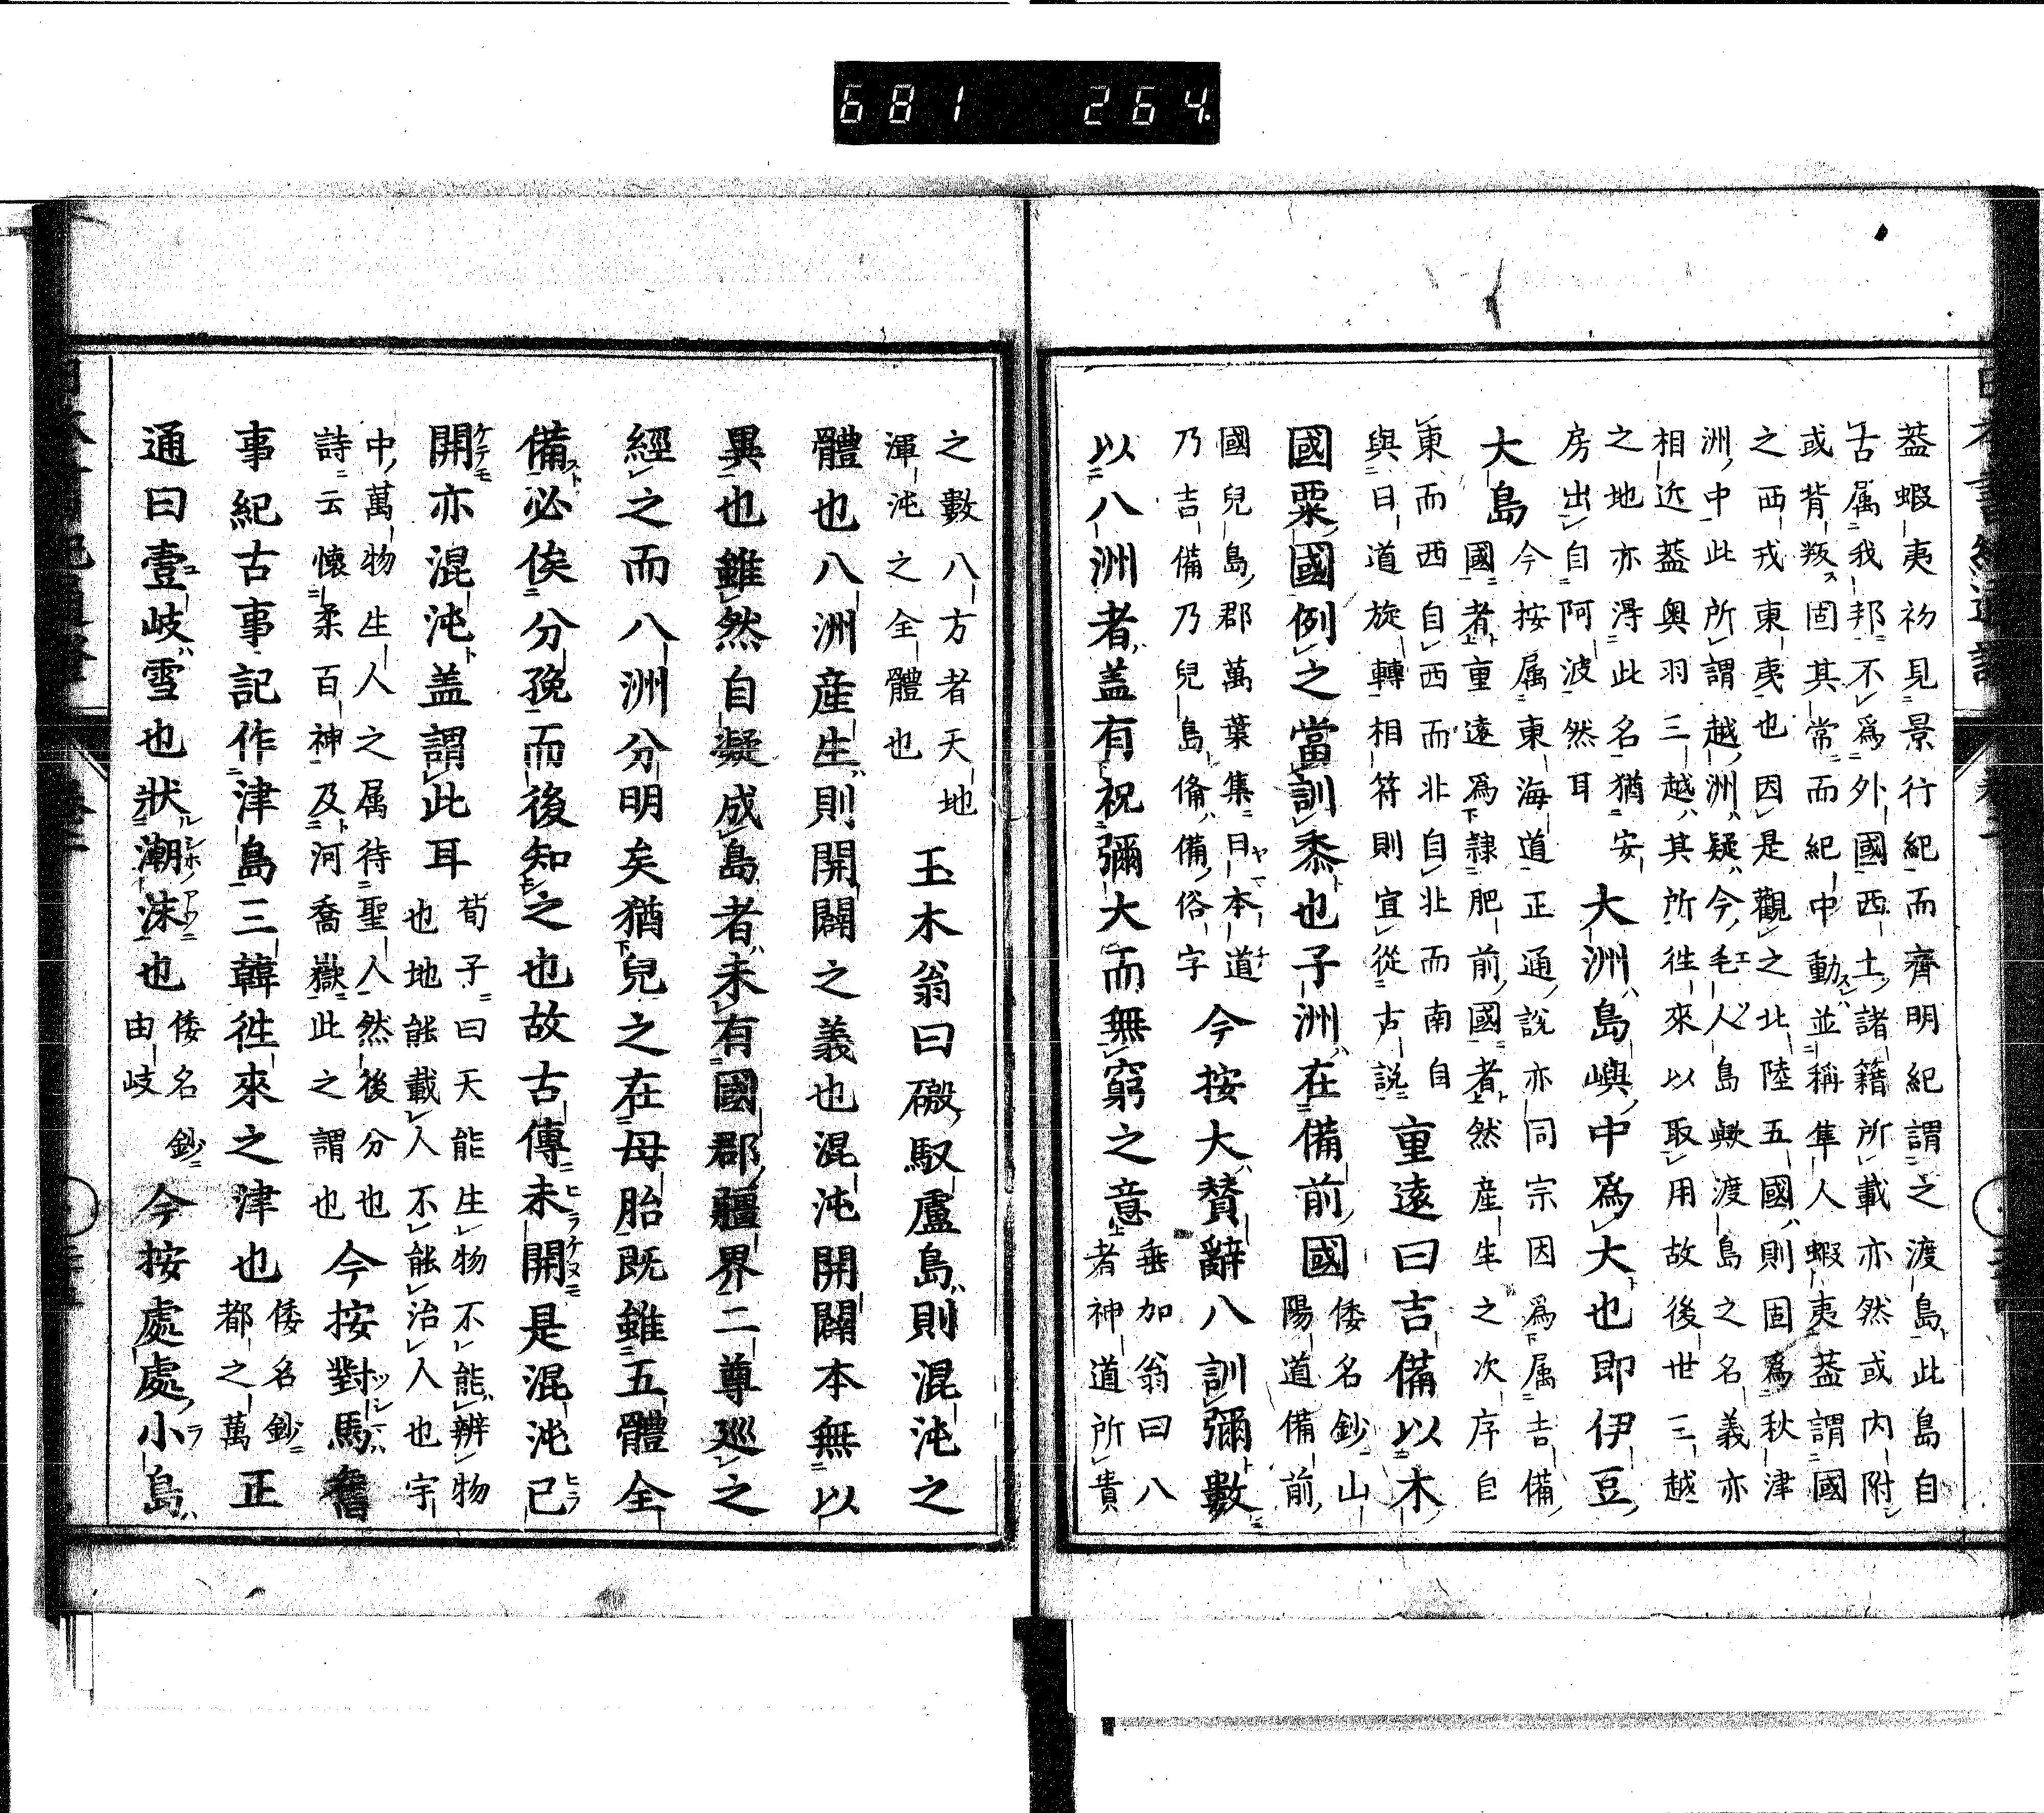 681 264
葢蝦夷初見景行紀而齊明紀謂之渡島此島自
古属我邦不爲外國西土諸籍所載亦然或内附
或背叛固其常而紀中動並稱隼人蝦夷葢謂國
之西戎東夷也因是觀之北陸五國則固爲秋津
洲中此所謂越洲疑今毛人島歟渡島之名義亦
相近葢奥羽三越其所徃來以取用故後世三越
之地亦得此名猶安
房出自阿波然耳
大洲島嶼中爲大也即伊豆
大島
今按属東海道正通説亦同宗因爲属吉備
國者重遠爲隷肥前國者然産生之次序自
東而西自西而北自北而南自
與日道旋轉相符則宜從古説
重遠曰吉備以木
國粟國例之當訓黍也子洲在備前國
倭名鈔山
陽道備前
國兒島郡萬葉集曰本道
乃吉備乃兒島俻備俗字
今按大賛辭八訓彌數
以八洲者盖有祝彌大而無窮之意
垂加翁曰八
者神道所貴
之數八方者天地
渾沌之全體也
玉木翁曰磤馭盧島則混沌之
體也八洲産生則開闢之義也混沌開闢本無以
異也雖然自凝成島者未有國郡疆界二尊廵之
經之而八洲分明矣猶兒之在母胎既雖五體全
備必俟分娩而後知之也故古傳未開是混沌已
開亦混沌盖謂此耳
荀子曰天能生物不能辨物
也地能載人不能治人也宇
中萬物生人之属待聖人然後分也
詩云懷柔百神及河喬嶽此之謂也
今按對馬舊
事紀古事記作津島三韓徃來之津也
倭名鈔
都之萬
正
通曰壹岐雪也狀潮沫也
倭名鈔
由岐
今按處處小島